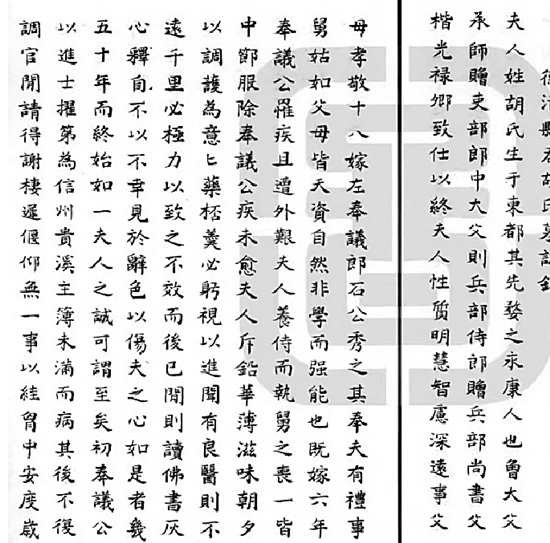 縣君胡氏墓誌銘
夫人姓胡氏生于東都其先婺之永康人也魯大父
承師贈吏部郎中大父則兵部侍郎贈兵部尚書父
楷光禄卿致仕以終夫人性質明慧智慮深遠事父
母孝敬十八嫁左奉議郎石公秀之其奉夫有禮事
舅姑如父母皆天資自然非學而强能也既嫁六年
奉議公罹疾且遭外艱夫人養侍而執舅之喪一皆
中節服除奉議公疾未愈夫人斥鉛華薄滋味朝夕
以調護為意匕藥柸羮必躬視以進聞有良醫則不
遠千里必極力以致之不效而後已閒則讀佛書灰
心釋自不以不幸見於辭色以傷夫之心如是者幾
五十年而終始如一夫人之誠可謂至矣初奉議公
以進士擢第為信州貴溪主簿未滿而病其後不復
調官閒請得謝棲遲偃仰無一事以絓胷中安度嵗